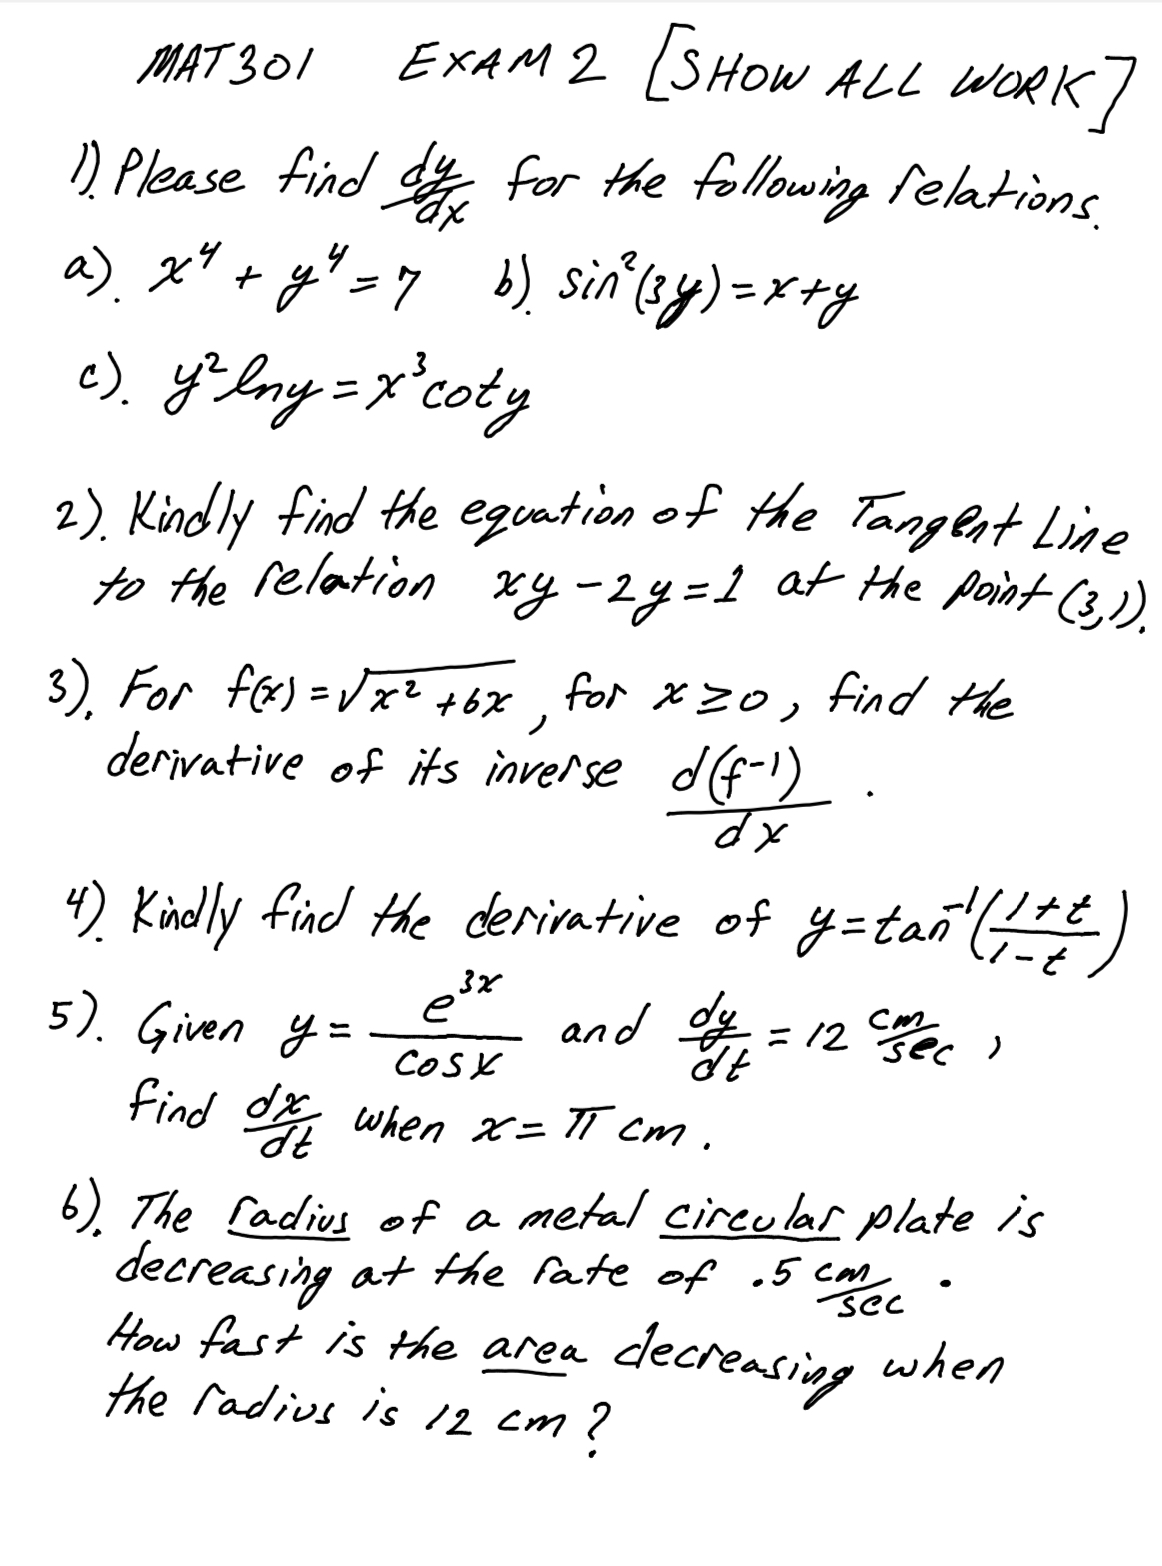 MAT301 EXAM 2 [SHOW ALL WORK]
1). Please find dy/dx for the following relations.
a). x⁴ + y⁴ = 7 b). sin²(3y) = x+y
c). y² ln y = x³ cot y
2). Kindly find the equation of the Tangent Line
to the relation xy - 2y = 1 at the point (3,1).
3). For f(x) = √(x² + 6x), for x ≥ 0, find the
derivative of its inverse d(f⁻¹)/dx .
4). Kindly find the derivative of y = tan⁻¹((1+t)/(1-t))
5). Given y = e³ˣ/cosx and dy/dt = 12 cm/sec ,
find dx/dt when x = π cm .
6). The radius of a metal circular plate is
decreasing at the rate of .5 cm/sec .
How fast is the area decreasing when
the radius is 12 cm ?